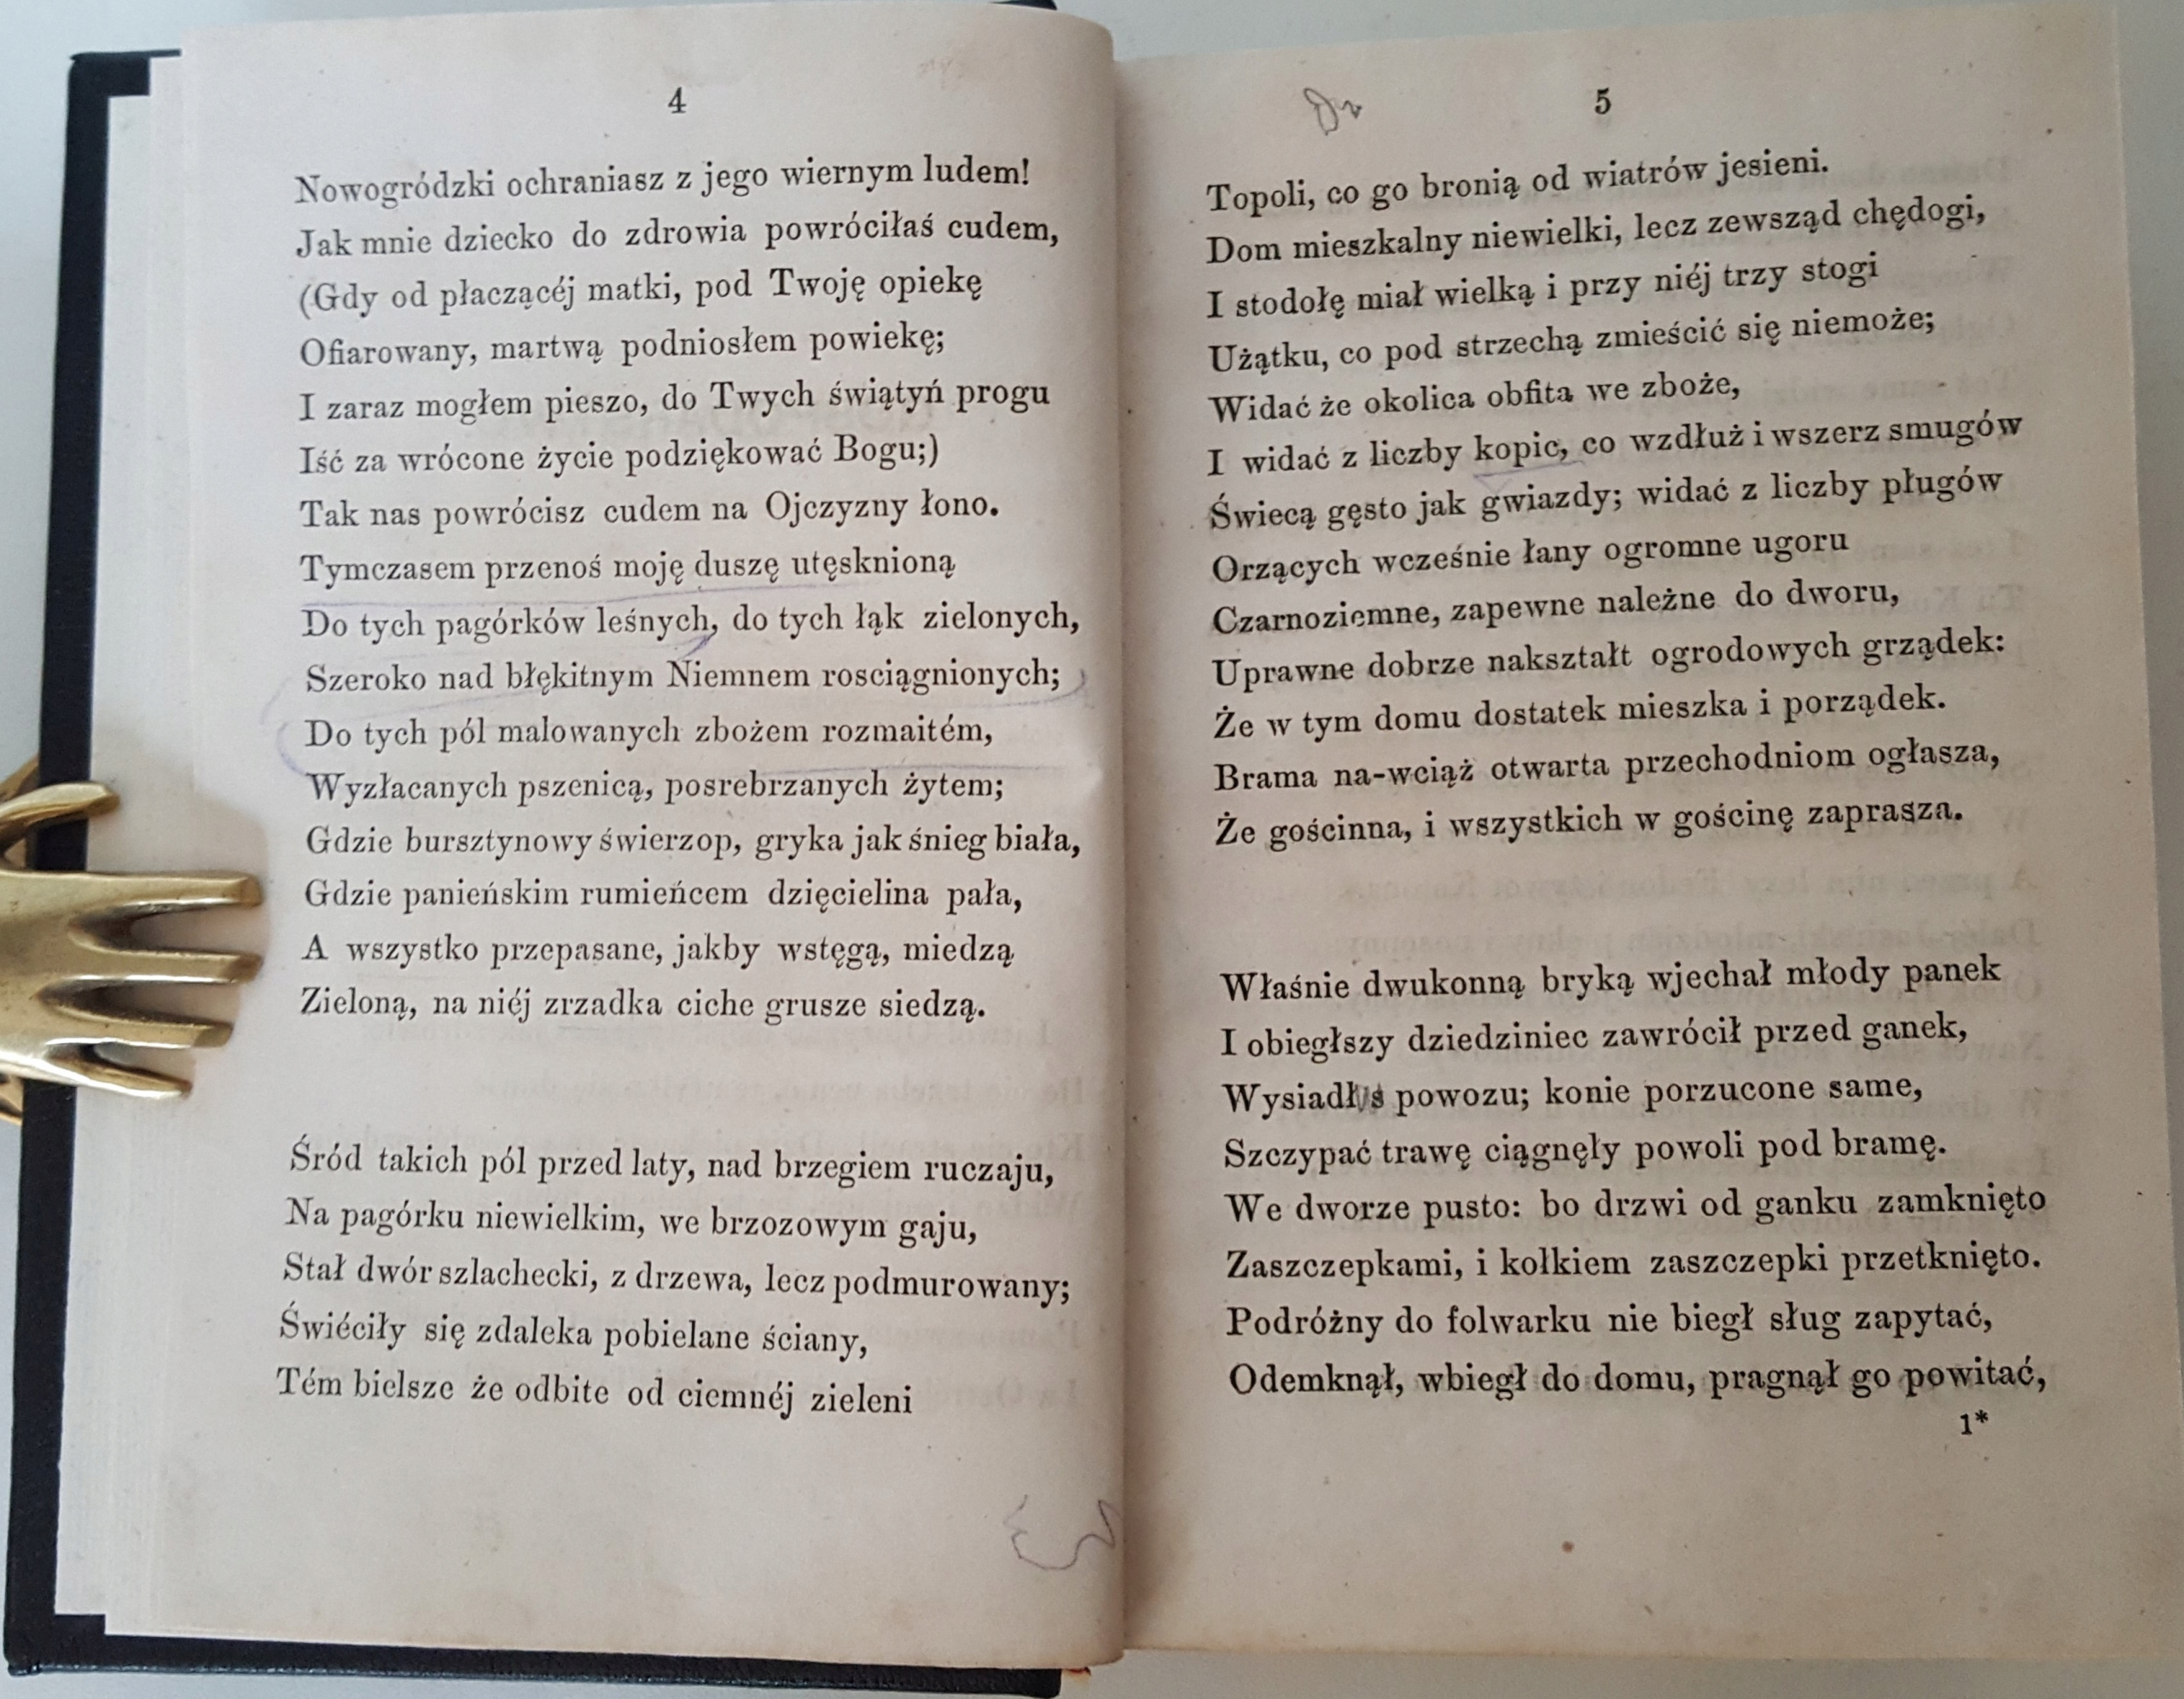 4
Nowogródzki ochraniasz z jego wiernym ludem!
Jak mnie dziecko do zdrowia powróciłaś cudem,
(Gdy od płaczącéj matki, pod Twoję opiekę
Ofiarowany, martwą podniosłem powiekę;
I zaraz mogłem pieszo, do Twych świątyń progu
Iść za wrócone życie podziękować Bogu;)
Tak nas powrócisz cudem na Ojczyzny łono.
Tymczasem przenoś moję duszę utęsknioną
Do tych pagórków leśnych, do tych łąk zielonych,
Szeroko nad błękitnym Niemnem rosciągnionych;
Do tych pól malowanych zbożem rozmaitém,
Wyzłacanych pszenicą, posrebrzanych żytem;
Gdzie bursztynowy świerzop, gryka jak śnieg biała,
Gdzie panieńskim rumieńcem dzięcielina pała,
A wszystko przepasane, jakby wstęgą, miedzą
Zieloną, na niéj zrzadka ciche grusze siedzą.
Śród takich pól przed laty, nad brzegiem ruczaju,
Na pagórku niewielkim, we brzozowym gaju,
Stał dwór szlachecki, z drzewa, lecz podmurowany;
Świéciły się zdaleka pobielane ściany,
Tém bielsze że odbite od ciemnéj zieleni
5
Topoli, co go bronią od wiatrów jesieni.
Dom mieszkalny niewielki, lecz zewsząd chędogi,
I stodołę miał wielką i przy niéj trzy stogi
Użątku, co pod strzechą zmieścić się niemoże;
Widać że okolica obfita we zboże,
I widać z liczby kopic, co wzdłuż i wszerz smugów
Świecą gęsto jak gwiazdy; widać z liczby pługów
Orzących wcześnie łany ogromne ugoru
Czarnoziemne, zapewne należne do dworu,
Uprawne dobrze nakształt ogrodowych grządek:
Że w tym domu dostatek mieszka i porządek.
Brama na-wciąż otwarta przechodniom ogłasza,
Że gościnna, i wszystkich w gościnę zaprasza.
Właśnie dwukonną bryką wjechał młody panek
I obiegłszy dziedziniec zawrócił przed ganek,
Wysiadł powozu; konie porzucone same,
Szczypać trawę ciągnęły powoli pod bramę.
We dworze pusto: bo drzwi od ganku zamknięto
Zaszczepkami, i kołkiem zaszczepki przetknięto.
Podróżny do folwarku nie biegł sług zapytać,
Odemknął, wbiegł do domu, pragnął go powitać,
1*